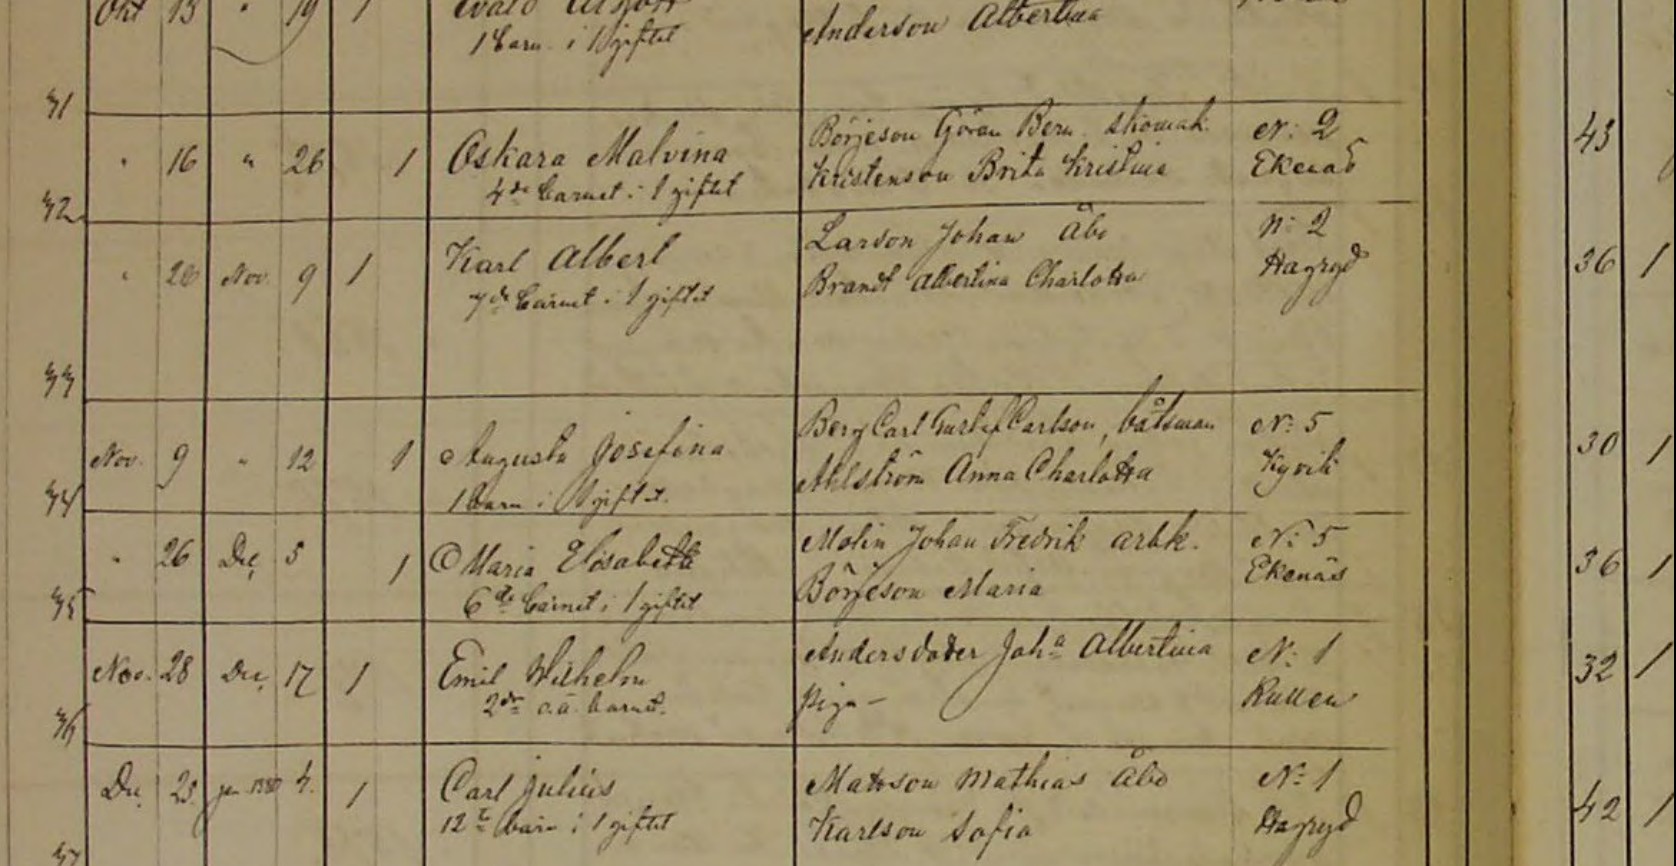 Okt 13 " 19 1
1 barn i 1 giftet
Anderson Albertina
41
" 16 " 26 1 Oskara Malvina Börjeson Göran Bern. skomak. N: 2 43
4de barnet i 1 giftet Kristenson Brita Kristina Ekenäs
42
" 26 Nov. 9 1 Karl Albert Larson Johan Åbo N: 2 36 1
7de barnet i 1 giftet Brandt Albertina Charlotta Hagryd
43
Nov. 9 " 12 1 Augusta Josefina Berg Carl Gustaf Carlson, båtsman N: 5 30 1
1 barn i 1 giftet. Ahlström Anna Charlotta
44
" 26 Dec. 5 1 Maria Elisabeth Molin Johan Fredrik arbk. N: 5 36 1
6te barnet i 1 giftet Börjeson Maria Ekenäs
45
Nov. 28 Dec. 17 1 Emil Wilhelm Andersdoter Joha Albertina N: 1 32 1
2dra o.ä. barnet. piga – Kullen
46
Dec. 23 jan. 1880 4. 1 Carl Julius Matsson Mathias Åbo N: 1 42 1
12te barn i 1 giftet Karlson Sofia Hagryd
47